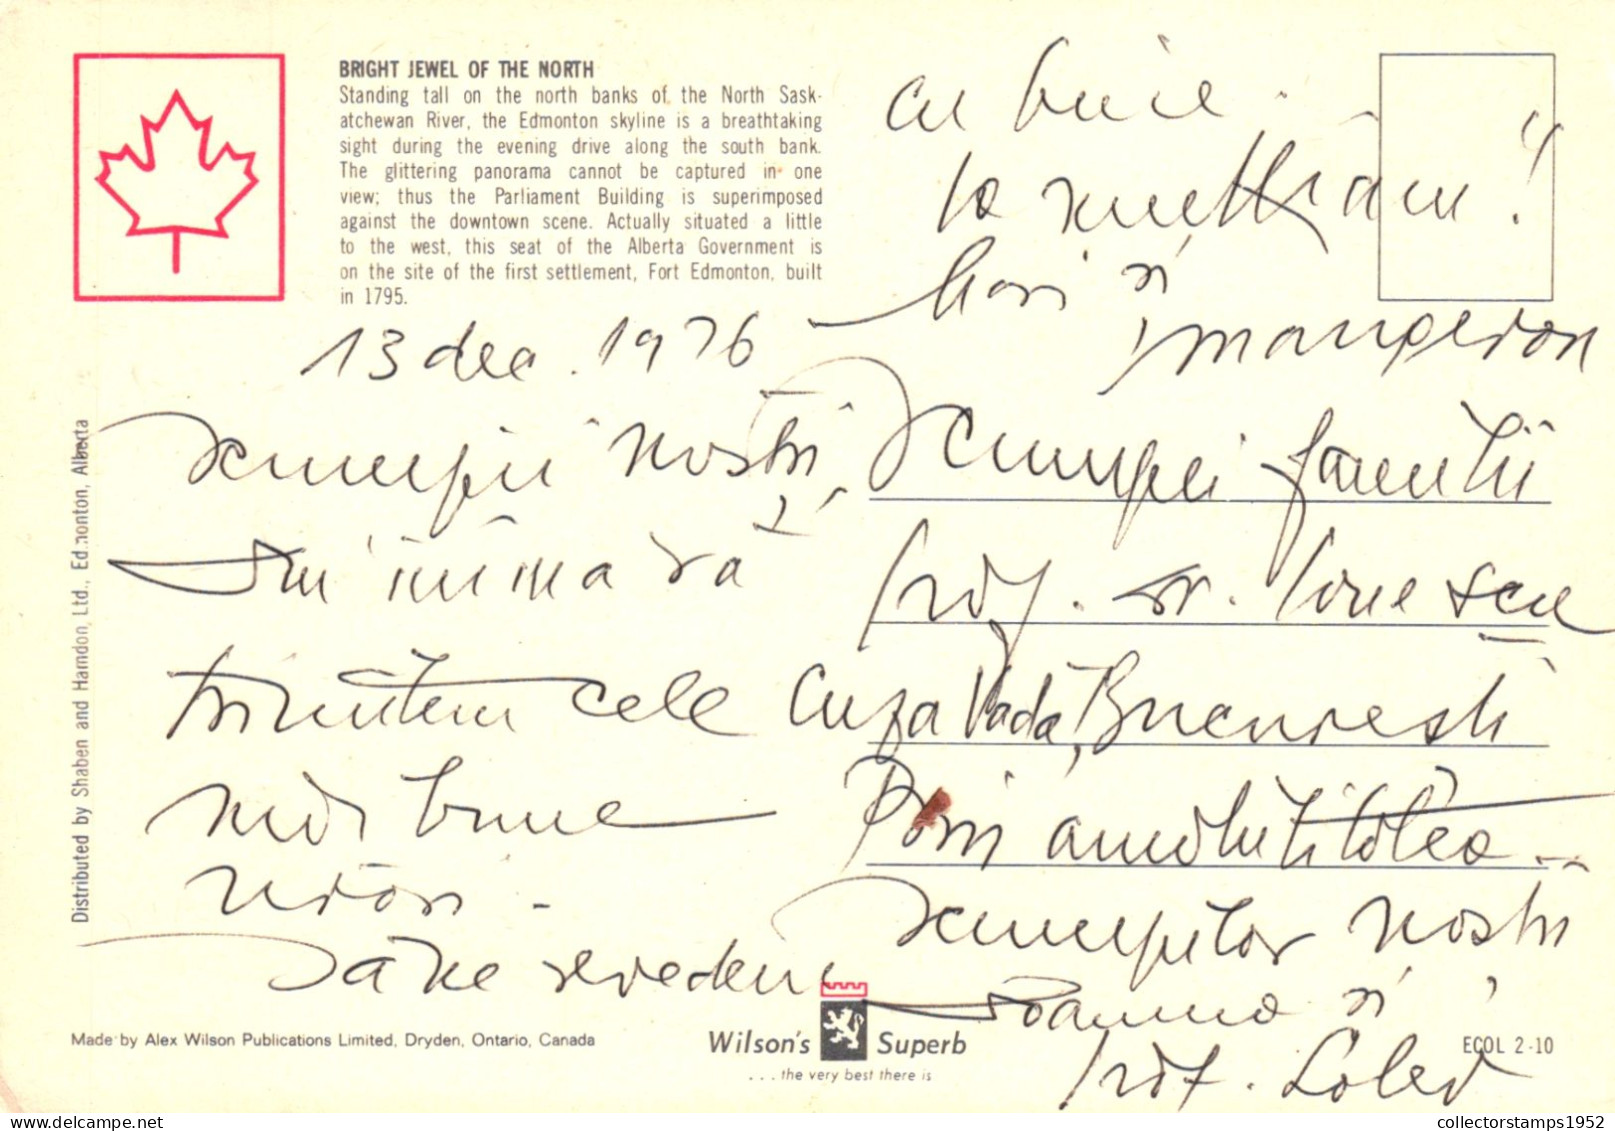 BRIGHT JEWEL OF THE NORTH
Standing tall on the north banks of the North Sask-
atchewan River, the Edmonton skyline is a breathtaking
sight during the evening drive along the south bank.
The glittering panorama cannot be captured in one
view; thus the Parliament Building is superimposed
against the downtown scene. Actually situated a little
to the west, this seat of the Alberta Government is
on the site of the first settlement, Fort Edmonton, built
in 1795.
13 dec. 1976
Scumpii noștri,
Din inimă vă
trimitem cele
mai bune
urări -
Să ne revedem
cu bine.
Vă îmbrățișăm!
și
Scumpei familii
prof. dr. Ionescu
Cuza Vodă, București
Prin amabilitatea
scumpilor noștri
Doamna și
prof.
Distributed by Shaben and Harndon, Ltd., Edmonton, Alberta
Made by Alex Wilson Publications Limited, Dryden, Ontario, Canada
Wilson's Superb
...the very best there is
ECOL 2-10
collectorstamps1952